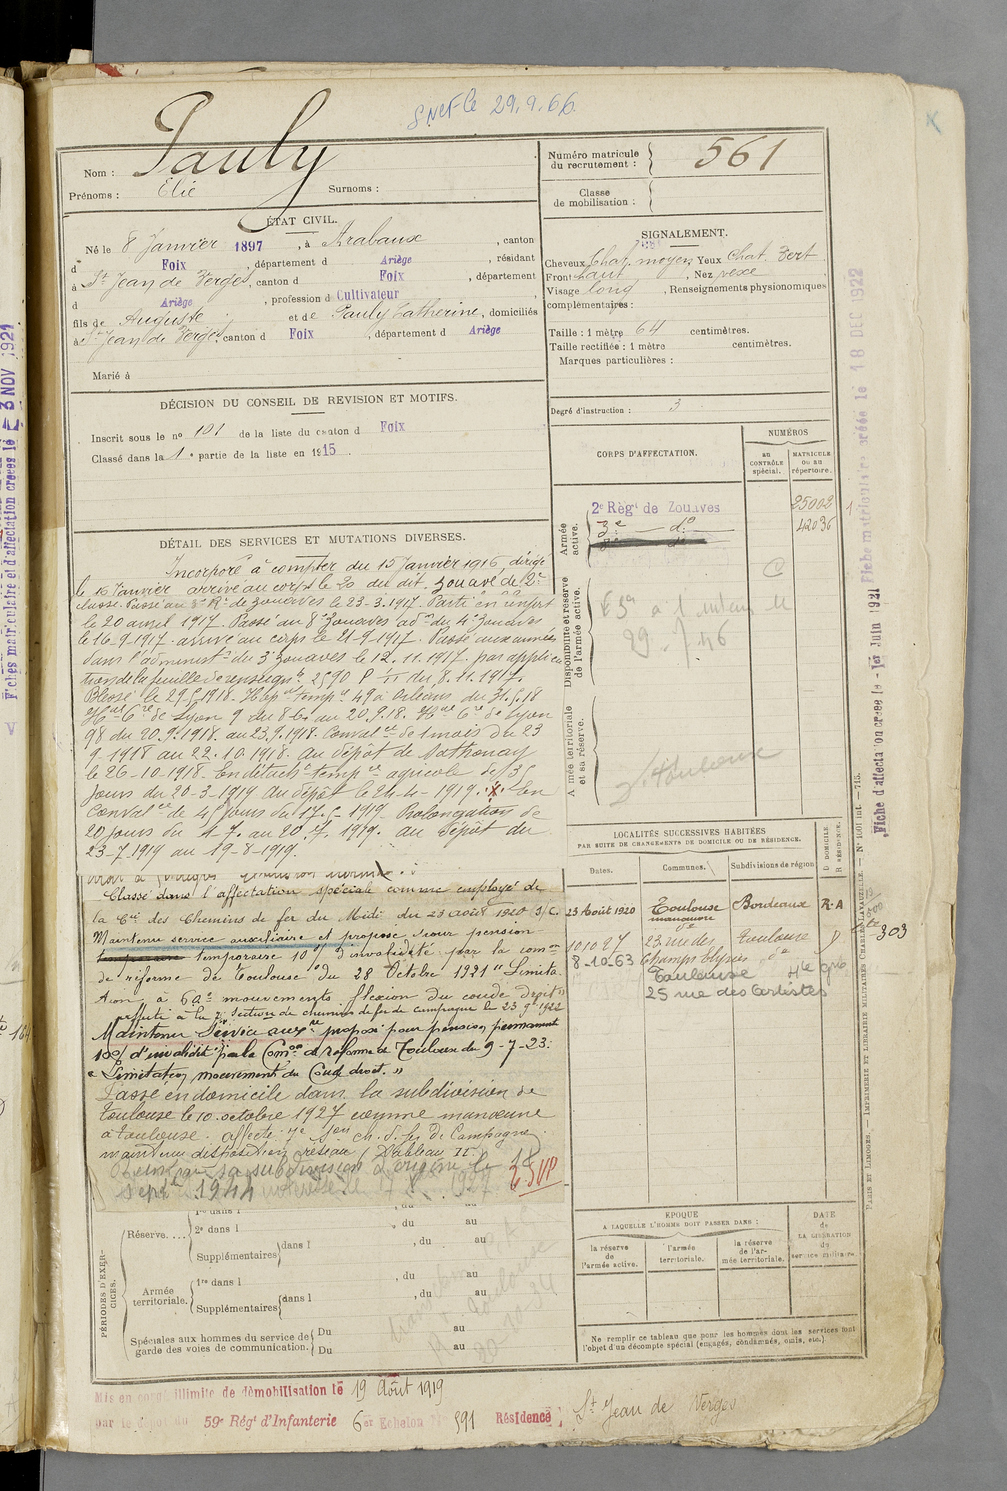 SNCF le 29.9.66
Nom : Pauly
Prénoms : Elie Surnoms :
Numéro matricule du recrutement : 561
Classe de mobilisation :
ÉTAT CIVIL.
Né le 8 Janvier 1897, à Arabaux, canton
d Foix, département d Ariège, résidant
à St Jean de Verges, canton d Foix, département
d Ariège, profession d Cultivateur
fils de Auguste et de Pauly Catherine, domiciliés
à St Jean de Verges, canton d Foix, département d Ariège
Marié à
SIGNALEMENT.
Cheveux Chat. moyen Yeux Chat. Vert
Front haut, Nez vexe
Visage long, Renseignements physionomiques
complémentaires :
Taille : 1 mètre 64 centimètres.
Taille rectifiée : 1 mètre centimètres.
Marques particulières :
Degré d'instruction : 3
DÉCISION DU CONSEIL DE REVISION ET MOTIFS.
Inscrit sous le no 101 de la liste du canton d Foix
Classé dans la 1e partie de la liste en 1915.
DÉTAIL DES SERVICES ET MUTATIONS DIVERSES.
Incorporé à compter du 15 Janvier 1916, dirigé
le 15 Janvier arrivé au corps le 20 du dit. zouave de 2e
classe. Passé au 8e Rt de zouaves le 23-3-1917. Parti en renfort
le 20 avril 1917. Passé au 8e zouaves 4e zouaves
le 16-9-1917. arrivé au corps le 21-9-1917. Passé aux armées
dans l'administon du 3e zouaves le 12.11.1917. par applica
tion de la feuille de renseignts 2590 P du 8.11.1917.
Blessé le 29.5.1918. Hop temp 49 à Orléans du 31.5.18
de Lyon 9 du au 20.9.18. de Lyon
98 du 20.9.1918. au 23.9.1918. Conval ce de 1 mois du 23
9-1918 au 22.10.1918. au dépôt de Sathonay
le 26-10-1918. En détacht temp re agricole de 35
jours du 20-3-1919 au dépôt le 24-4-1919. En
conval ce de 45 jours du 17.5-1919. Prolongation de
20 jours du 1.7. au 20.7.1919. au Dépôt du
23-7-1919 au 19-8-1919.
Classé dans l'affectation spéciale comme employé de
la Cie des Chemins de fer du Midi du 23 août 1920 S/C.
Maintenu service auxiliaire et proposé pour pension
temporaire 10% d'invalidité par la comon
de réforme de Toulouse du 28 Octobre 1921 "Limita
tion à 60° mouvements flexion du coude droit"
affecté à la 7e Section de chemins de fer de campagne le 23 9 1922
Maintenu Service auxre proposé pour pension permanente
10% d'invalidité par la Comon de réforme de Toulouse du 9-7-23:
"Limitation mouvement du Coude droit."
Passé en domicile dans la subdivision de
Toulouse le 10 octobre 1927 comme manœuvre
à Toulouse. affecté 7e Son ch. d. fer de Campagne
maintenu disposition réseau (Tableau II)
sa subdivision d'origine le 18
sept 1944
TSVP
CORPS D'AFFECTATION.
NUMÉROS
au CONTRÔLE spécial.
MATRICULE ou au répertoire.
Armée active.
2e Régt de Zouaves 25002
3e do 42036
Disponibilité et réserve de l'armée active.
Armée territoriale et sa réserve.
Toulouse
LOCALITÉS SUCCESSIVES HABITÉES
PAR SUITE DE CHANGEMENTS DE DOMICILE OU DE RÉSIDENCE.
Dates. Communes. Subdivisions de région D. DOMICILE. R. RÉSIDENCE.
23 Août 1920 Toulouse Bordeaux R.A
manœuvre
10 10 27 23 rue des Toulouse D
8-10-63 Champs Elysées do
Toulouse Hte Gne
25 rue des Artistes
303
ÉPOQUE
A LAQUELLE L'HOMME DOIT PASSER DANS :
la réserve de l'armée active.
l'armée territoriale.
la réserve de l'armée territoriale.
DATE de LA LIBÉRATION du service militaire.
Ne remplir ce tableau que pour les hommes dont les services font
l'objet d'un décompte spécial (engagés, condamnés, omis, etc.)
PÉRIODES D'EXERCICES.
Réserve....
1re dans l , du au
2e dans l , du au
Supplémentaires dans l , du au
Armée territoriale.
1re dans l , du au
Supplémentaires dans l , du au
Spéciales aux hommes du service de
garde des voies de communication.
Du au
Du au
Mis en congé illimité de démobilisation le 19 Août 1919
par le dépôt du 59e Régt d'Infanterie 6er Echelon No 591 Résidence St Jean de Verges
Fiche matriculaire créée le 18 DEC 1922
Fiche d'affectation créée le 1er Juin 1921
Fiches matriculaire et d'affectation créées le 3 NOV 1921
PARIS ET LIMOGES. — IMPRIMERIE ET LIBRAIRIE MILITAIRES CHARLES-LAVAUZELLE. — No 1001 int. — 715.